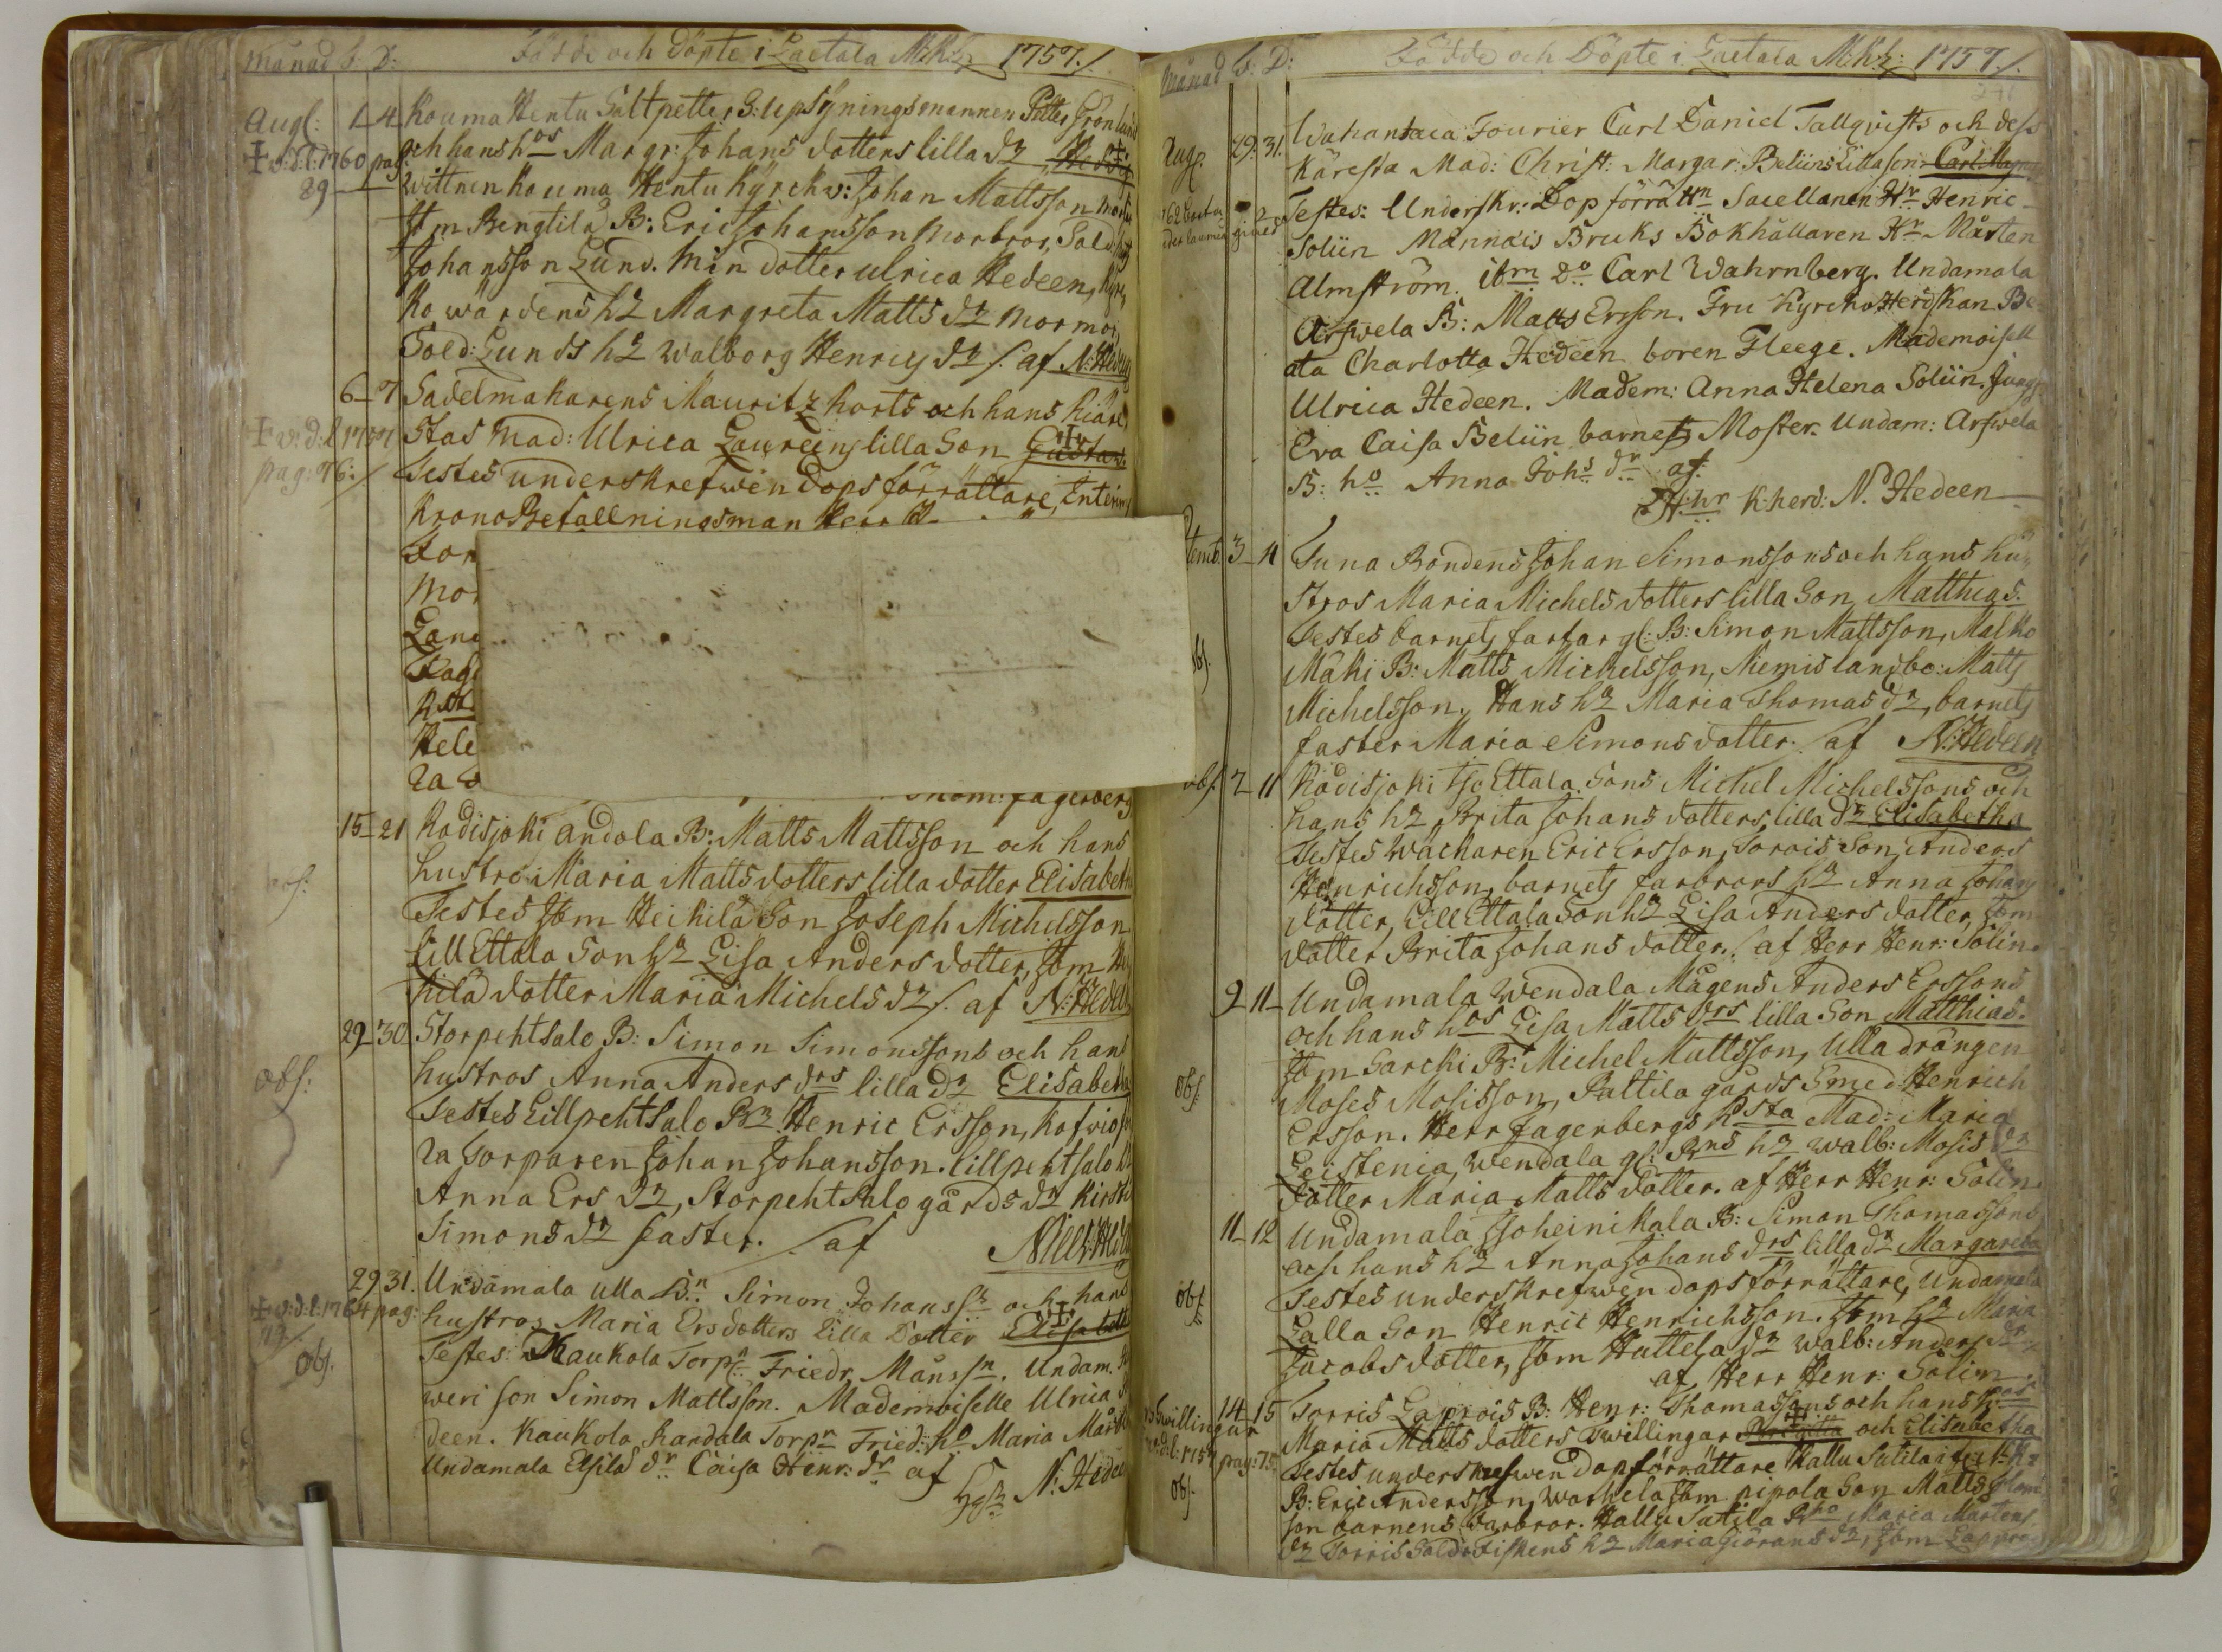 Månad b: D: Födde och döpte i Laetala M:k:z 1757./.
Augl: 1 4 Kouma Hentu Saltpetter S: upsÿningsmannen Petter Grönlunds
✝ v: d: l: 1760 pag: och hans hos Margr: Johans dotters lilla dr
89 wittnen Kouma Hentu Kyrckv: Johan Mattsson morfar
Jbm Bengtilä B: Eric Johansson morbror, Sold:
Johansson Lund. Min dotter Ulrica Hedeen, Kyr
ko wärdens hr Margreta Matts dr mormor,
Sold: Lunds hr Walborg Henrics dr /. af N: Hedeen
6 7 Sadelmakarens Mauritz Korts och hans kiäre
✝ v: d: l 1757 stas Mad: Ulrica Laureeins lilla Son Gustav.
pag: 76: / Testes underskrefwen dops förrättare, Interims
Krono Befallningsman Herr
For
Mor
Lan
Fag
Hele
ra
Thom: fagerberg
15 21 Kodisjoki andola B: Matts Mattsson och hans
hustro Maria Mattsdotters lilla dotter Elisabeth
obs: Testes Jbm Heikilä Son Joseph Michelsson
Lill Ettala Son hr Lisa Anders dotter, Jbm Hei
kilä dotter Maria Michels dr /. af N: Hedeen
29 30 Storpehtsalo B: Simon Simonssons och hans
obs: hustros Anna Anders drs lilla dr Elisabeth
Testes Lillpehtsalo Bn Henric Ersson, Kofvio
ra Torparen Johan Johansson. Lillpehtsalo
Anna Ers dr, Storpehtsalo gårds dr Kirstin
Simons dr faster. /. af Nils: Hedeen
29 31. Undamala ulla Bn Simon Johanssn och hans
✝ v: d: l: 1764 pag: hustros Maria Ersdotters lilla Dotter Elisabeth
119 / Testes: Kaukola Torpn Friedr Månssn. Undam.
Obs. weri son Simon Mattsson. Mademoiselle Ulrica
deen. Kaukola Kardala Torpn Fried: ho Maria Mårts
Undamala Elsilä dr Caisa Henr: dr af N: Hedeen
Månad b: D: Födde och Döpte i Laetala M:k:z: 1757 /.
Aug: 29. 31. Wahantaca Fourier Carl Daniel Tallqvists och dess
Käresta Mad: Christ: Margar: Beliins Lilla son: Carl Magnus
Testes: Underskr: Dopförrättn Sacellanen Hr Henric
Soliin Mannäis Bruks Bokhållaren Hr Mårten
Almström. ibm Do Carl Wahrnberg. Undamala
Arfwela B: Matts Ersson. Fru Kyrcko Herdskan Be
ata Charlotta Hedeen boren Fleege. Mademoisell
Ulrica Hedeen. Madem: Anna Helena Soliin. Jungf:
Eva Caisa Beliin barnets Moster. Undam: Arfwela
B: ho Anna Johs dr af:
K: herd: N: Hedeen
temb. 3 4 Tuna Bondens Johan Simonssons och hans hu
stros Maria Michels dotters lilla Son Matthias.
obs. Testes barnets farfar gl: B: Simon Mattsson, Malko
Mäki B: Matts Michelsson, Niemis landbo: Matts
Michelsson, Hans hr Maria Thomas dr, barnets
faster Maria Simons dotter. /. af N: Hedeen
obs. 7 11 Kodisjoki Iso Ettala Sons Michel Michelssons och
hans hr Brita Johans dotters, lilla dr Elisabetha
Testes Wäckaren Eric Ersson, Sorois Son, Anders
Henrichsson, barnets farbrors hr Anna Johans
dotter, Lill Ettala Son hr Lisa Anders dotter, Jbm
dotter Brita Johans dotter. /. af Herr Henr: Solin.
9 11 Undamala Wendala Mågens Anders Erssons
och hans hos Lisa Matts drs lilla Son Matthias.
Jbm Sarcki B: Michel Mattsson, Ulla drängen
obs. Moses Mosisson, Paltila gårds Smed: Henrich
Ersson. Herr fagerbergs Ksta Mad: Maria
Leistenia, Wendala gl: Bns hr Walb: Mosis dr
dotter Maria Matts dotter. af Herr Henr: Solin.
11 12 Undamala Isoheinikala B: Simon Thomassons
och hans hr Anna Johans drs lilla dr Margareta
obs. Testes underskrefwen dopsförrättare, Undamala
Lalla Son Henric Henrichsson. Jbm hr Maria
Jacobs dotter, Jbm Huttela dr Walb: Anders dr,
af Herr Henr: Solin
Tvillingar 14 15 Torris Laprois B: Henr: Thomassons och hans hos
v: d: l: 1757 pag: 75. Maria Matts dotters twillingar Birgitta och Elisabetha
Testes underskrefwen dopförrättare Kallu Sutila
obs. B: Eric Andersson, Warhela Jbm pipola Son Matts Thom
son barnens farbror. Kallu Satila Bho Maria Mårtens
dr Torris Sold: Fiskens hr Maria Giörans dr, Jbm Lapprois